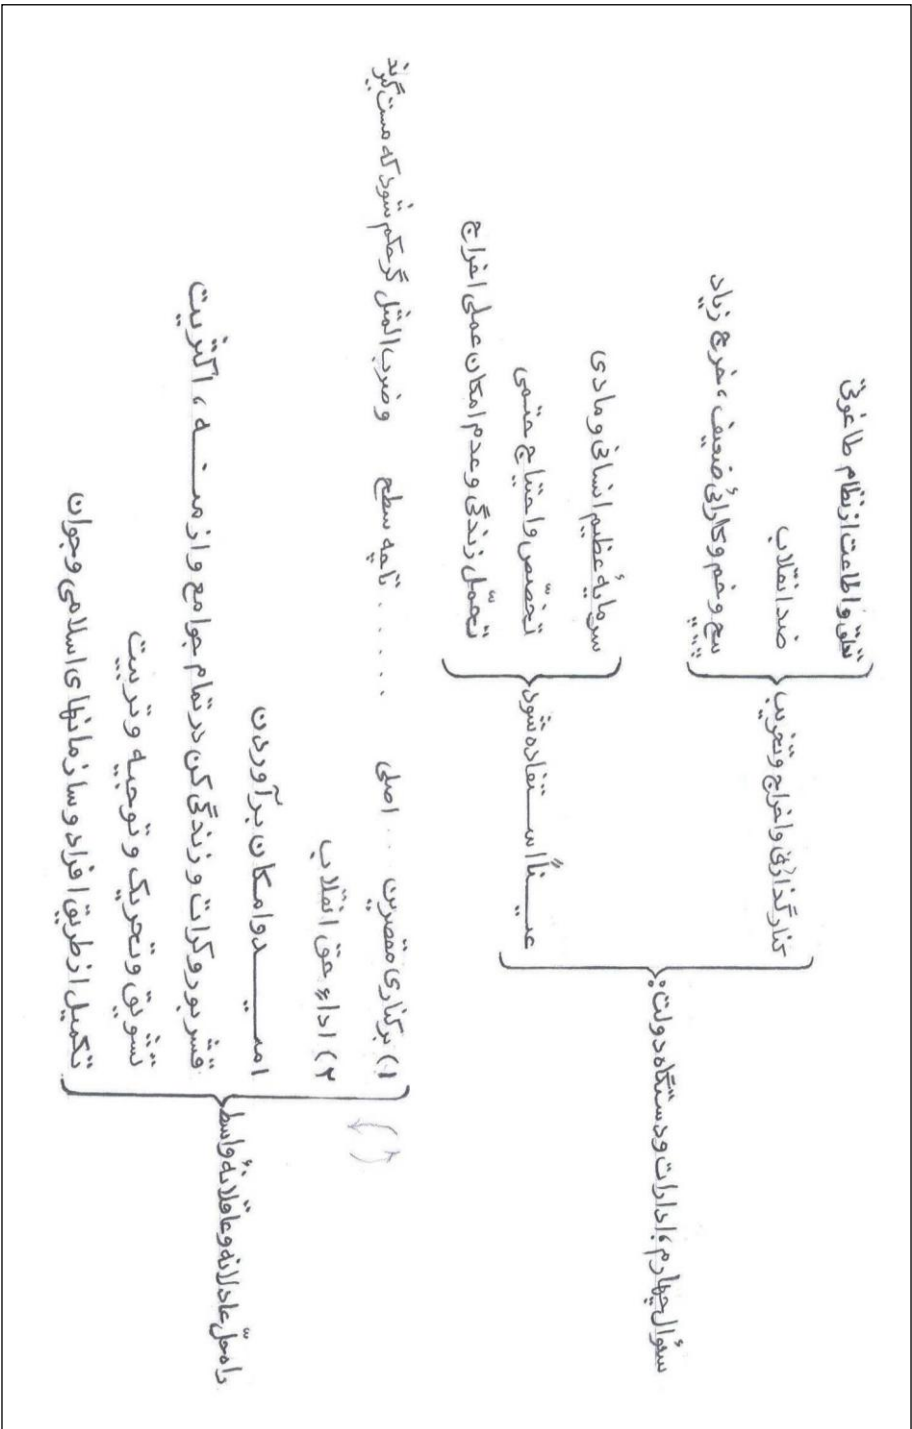 سئوال چهارم، ادارات و دستگاه دولت:
کنارگذاری و اخراج و تخریب
تعلق و اطاعت از نظام طاغوتی
ضد انقلاب
پیچ و خم و کارائی ضعیف، خرج زیاد
عیناً استفاده شود
سرمایهٔ عظیم انسانی و مادی
تخصّص و احتیاج حتمی
تحمّل زندگی و عدم امکان عملی اخراج
راه حلّ عادلانه و عاقلانهٔ واسط
۱) برکناری مقصرین اصلی . . . . تا چه سطح و ضرب المثل گر حکم شود که مست گیرند
۲) اداء حق انقلاب
امید و امکان برآوردن
قشر بوروکرات و زندگی کن در تمام جوامع و ازمنه، اکثریت
تشویق و تحریک و توجیه و تربیت
تکمیل از طریق افراد و سازمانهای اسلامی و جوان